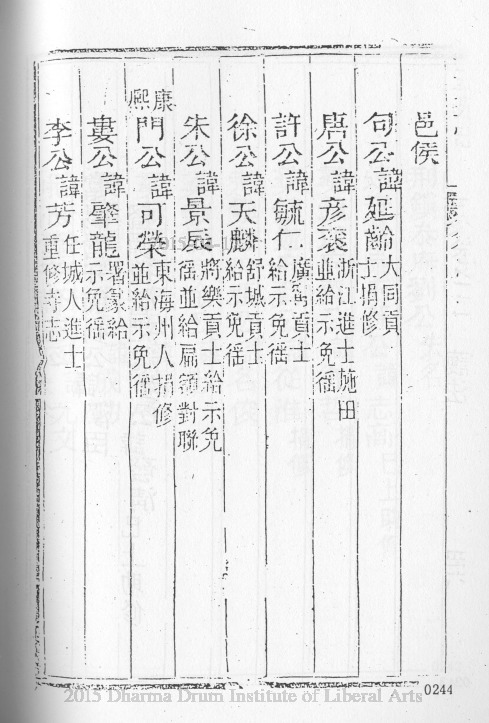 邑侯
句公諱延齡大同貢士捐修
唐公諱彥袞浙江進士施田並給示免徭
許公諱毓仁廣寧貢士給示免徭
徐公諱天麟舒城貢士給示免徭
朱公諱景辰將樂貢士給示免徭並給扁額對聯
康熙
門公諱可榮東海州人捐修並給示免徭
婁公諱肇龍署篆給示免徭
李公諱芳任城人進士重修寺志
0244
2015 Dharma Drum Institute of Liberal Arts